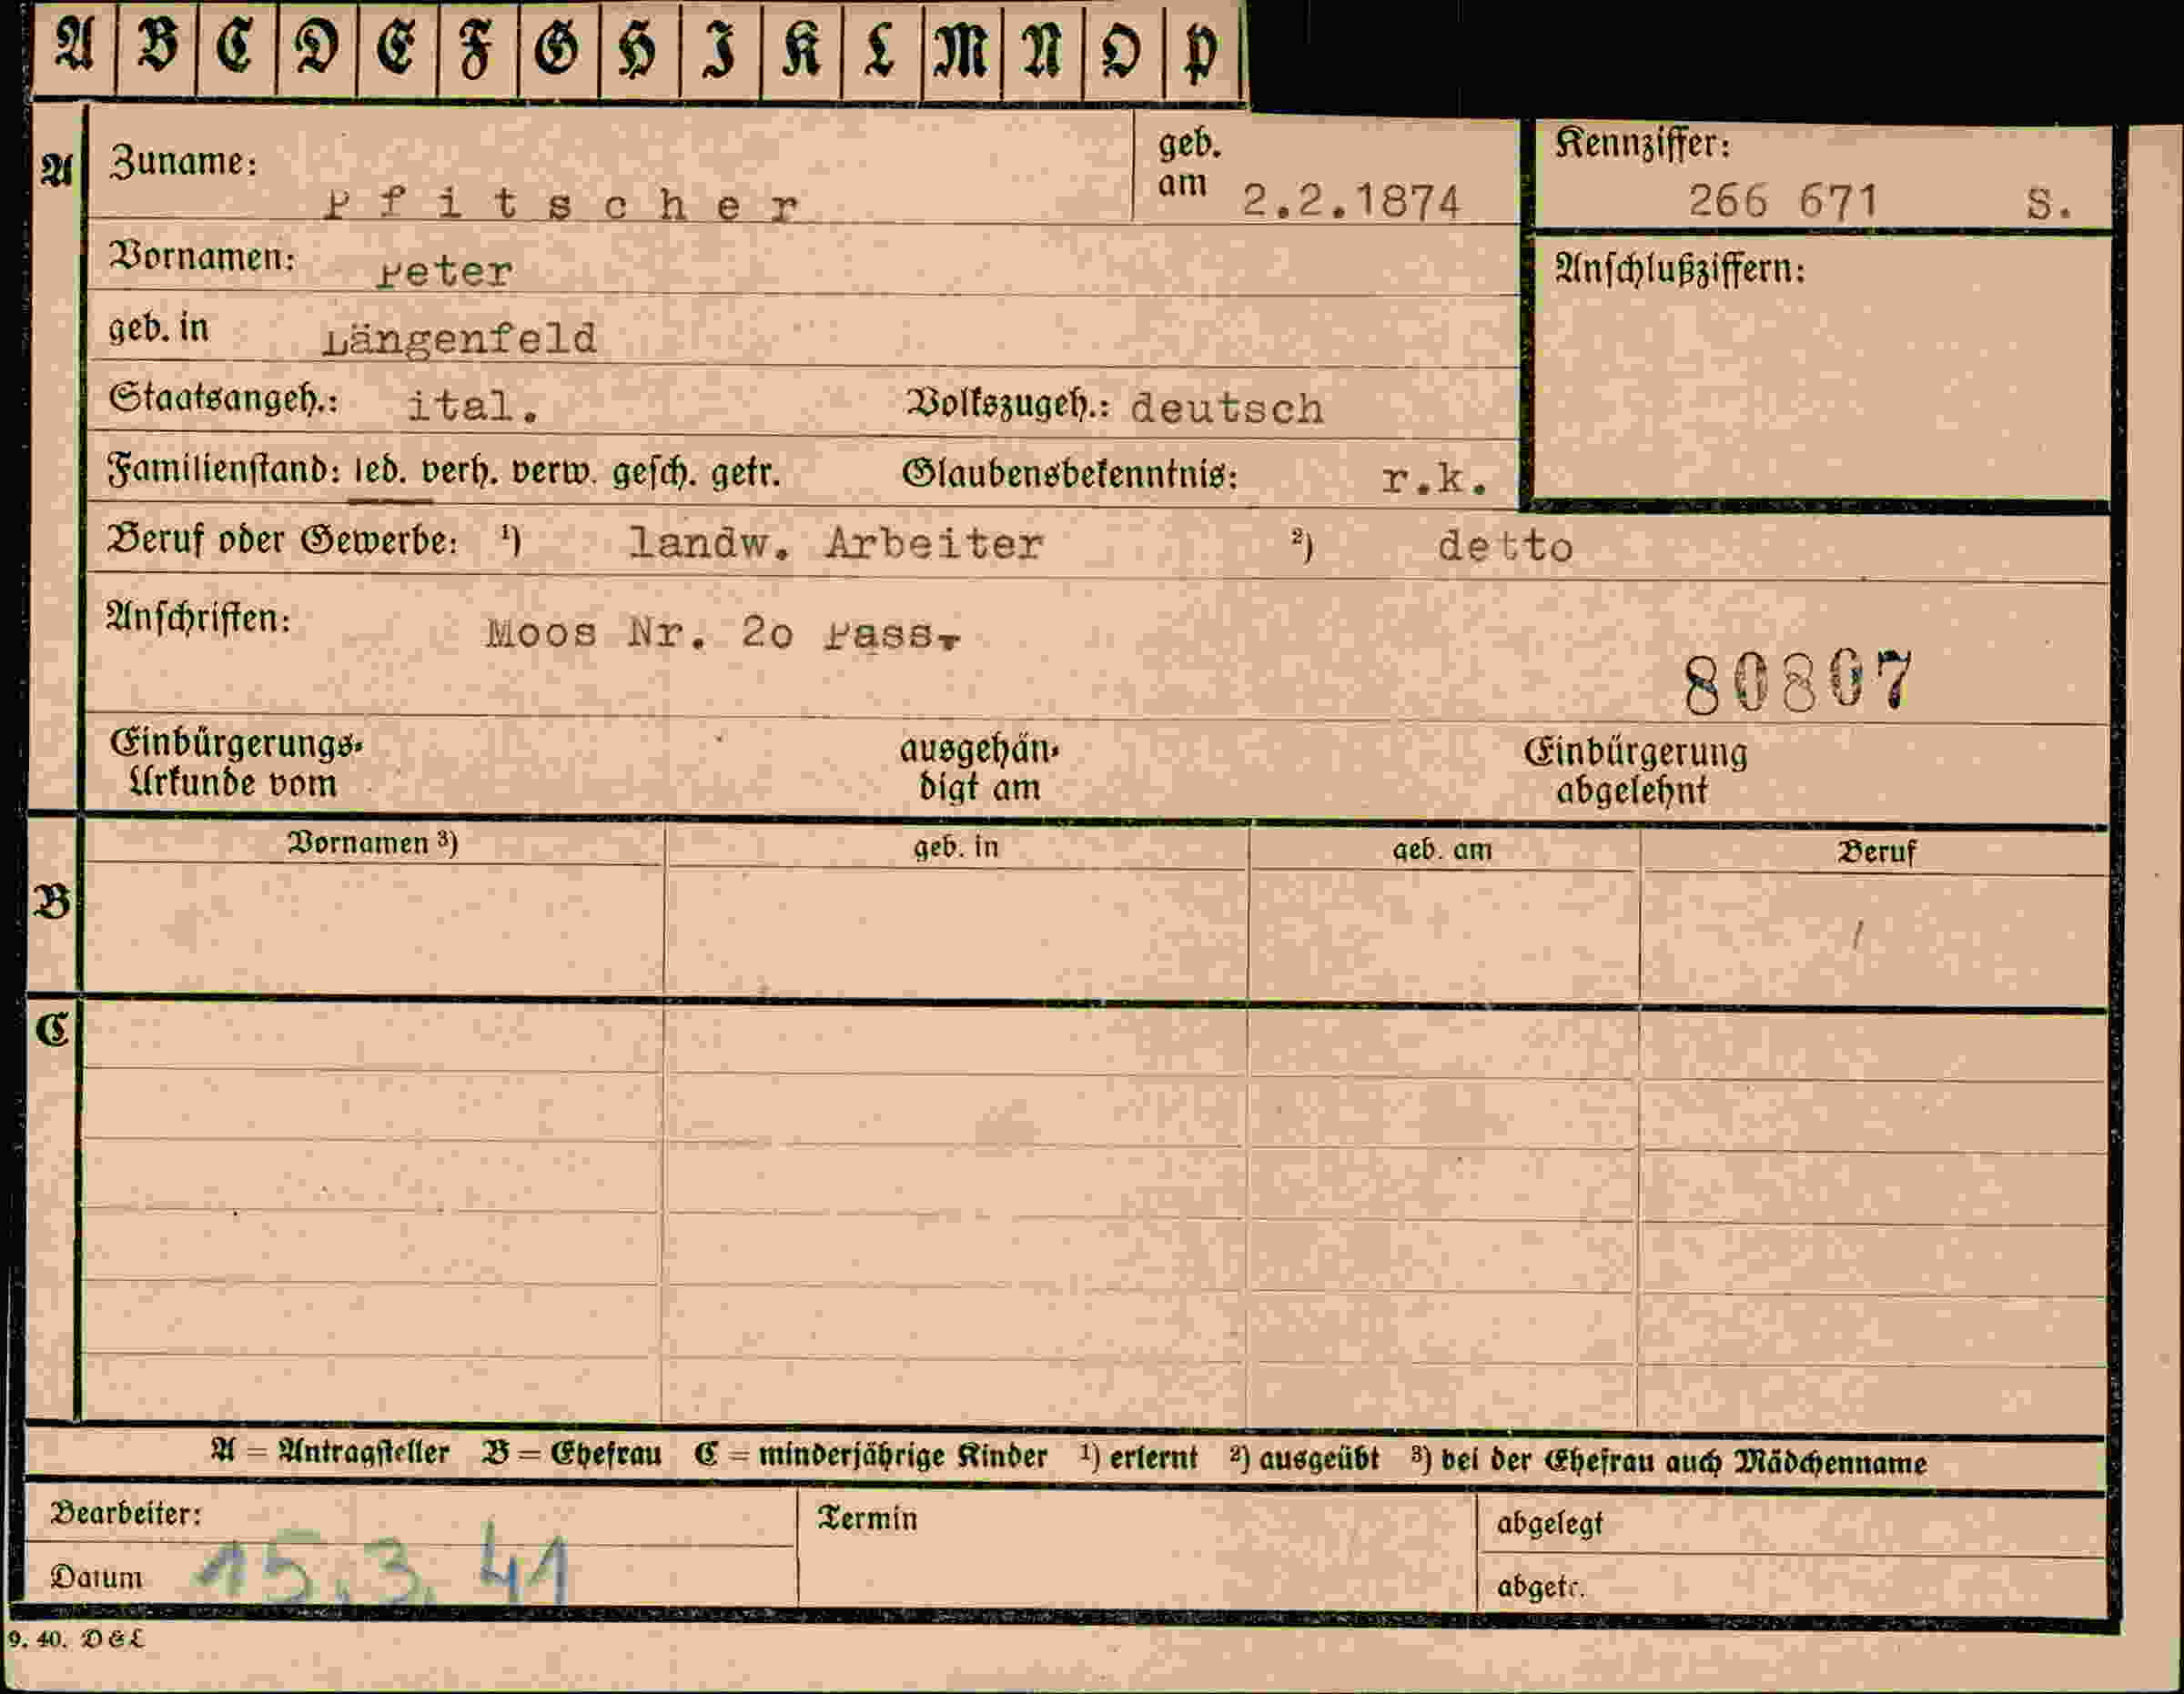 A B C D E F G H I K L M N O P
A Zuname: Pfitscher geb. am 2.2.1874 Kennziffer: 266 671 S.
Vornamen: Peter Anschlußziffern:
geb. in Längenfeld
Staatsangeh.: ital. Volkszugeh.: deutsch
Familienstand: led. verh. verw. gesch. getr. Glaubensbekenntnis: r.k.
Beruf oder Gewerbe: ¹) landw. Arbeiter ²) detto
Anschriften: Moos Nr. 2o Pass.
80807
Einbürgerungs- ausgehän- Einbürgerung
Urkunde vom digt am abgelehnt
Vornamen ³) geb. in geb. am Beruf
B
C
A = Antragsteller B = Ehefrau C = minderjährige Kinder ¹) erlernt ²) ausgeübt ³) bei der Ehefrau auch Mädchenname
Bearbeiter: Termin abgelegt
Datum 15.3.41 abgetr.
9. 40. D & L